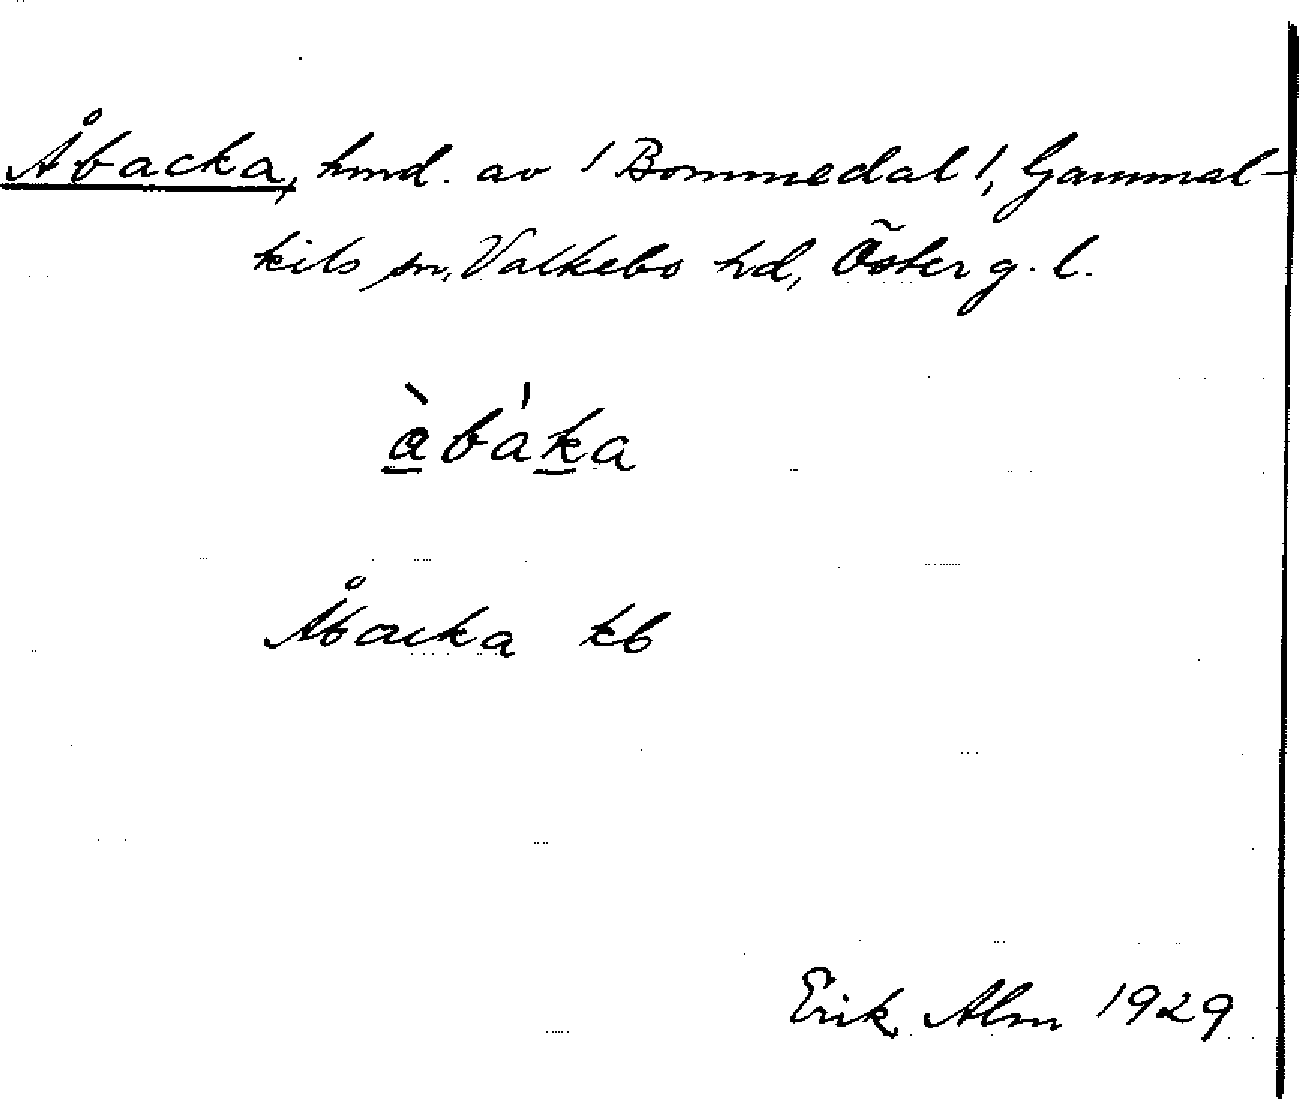 Åbacka, hmd. av 1 Bommedal 1, Gammal-
kils sn, Valkebo hd, Österg. l.
àbáka
Åbacka kb
Erik Alm 1929